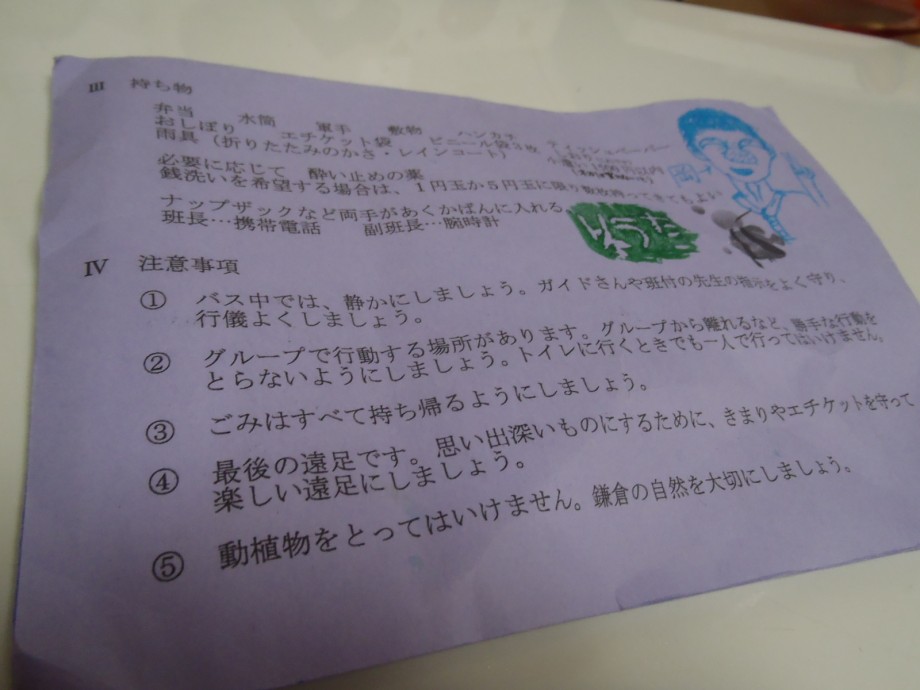 III 持ち物
弁当 水筒 軍手 敷物 ハンカチ ティッシュペーパー
おしぼり エチケット袋 ビニール袋3枚
雨具(折りたたみのかさ・レインコート)
必要に応じて 酔い止めの薬
銭洗いを希望する場合は、1円玉か5円玉に限り数枚持ってきてもよい
ナップザックなど両手があくかばんに入れる
班長…携帯電話 副班長…腕時計
IV 注意事項
① バス中では、静かにしましょう。ガイドさんや班付の先生の指示をよく守り、
行儀よくしましょう。
② グループで行動する場所があります。グループから離れるなど、勝手な行動を
とらないようにしましょう。トイレに行くときでも一人で行ってはいけません。
③ ごみはすべて持ち帰るようにしましょう。
④ 最後の遠足です。思い出深いものにするために、きまりやエチケットを守って
楽しい遠足にしましょう。
⑤ 動植物をとってはいけません。鎌倉の自然を大切にしましょう。